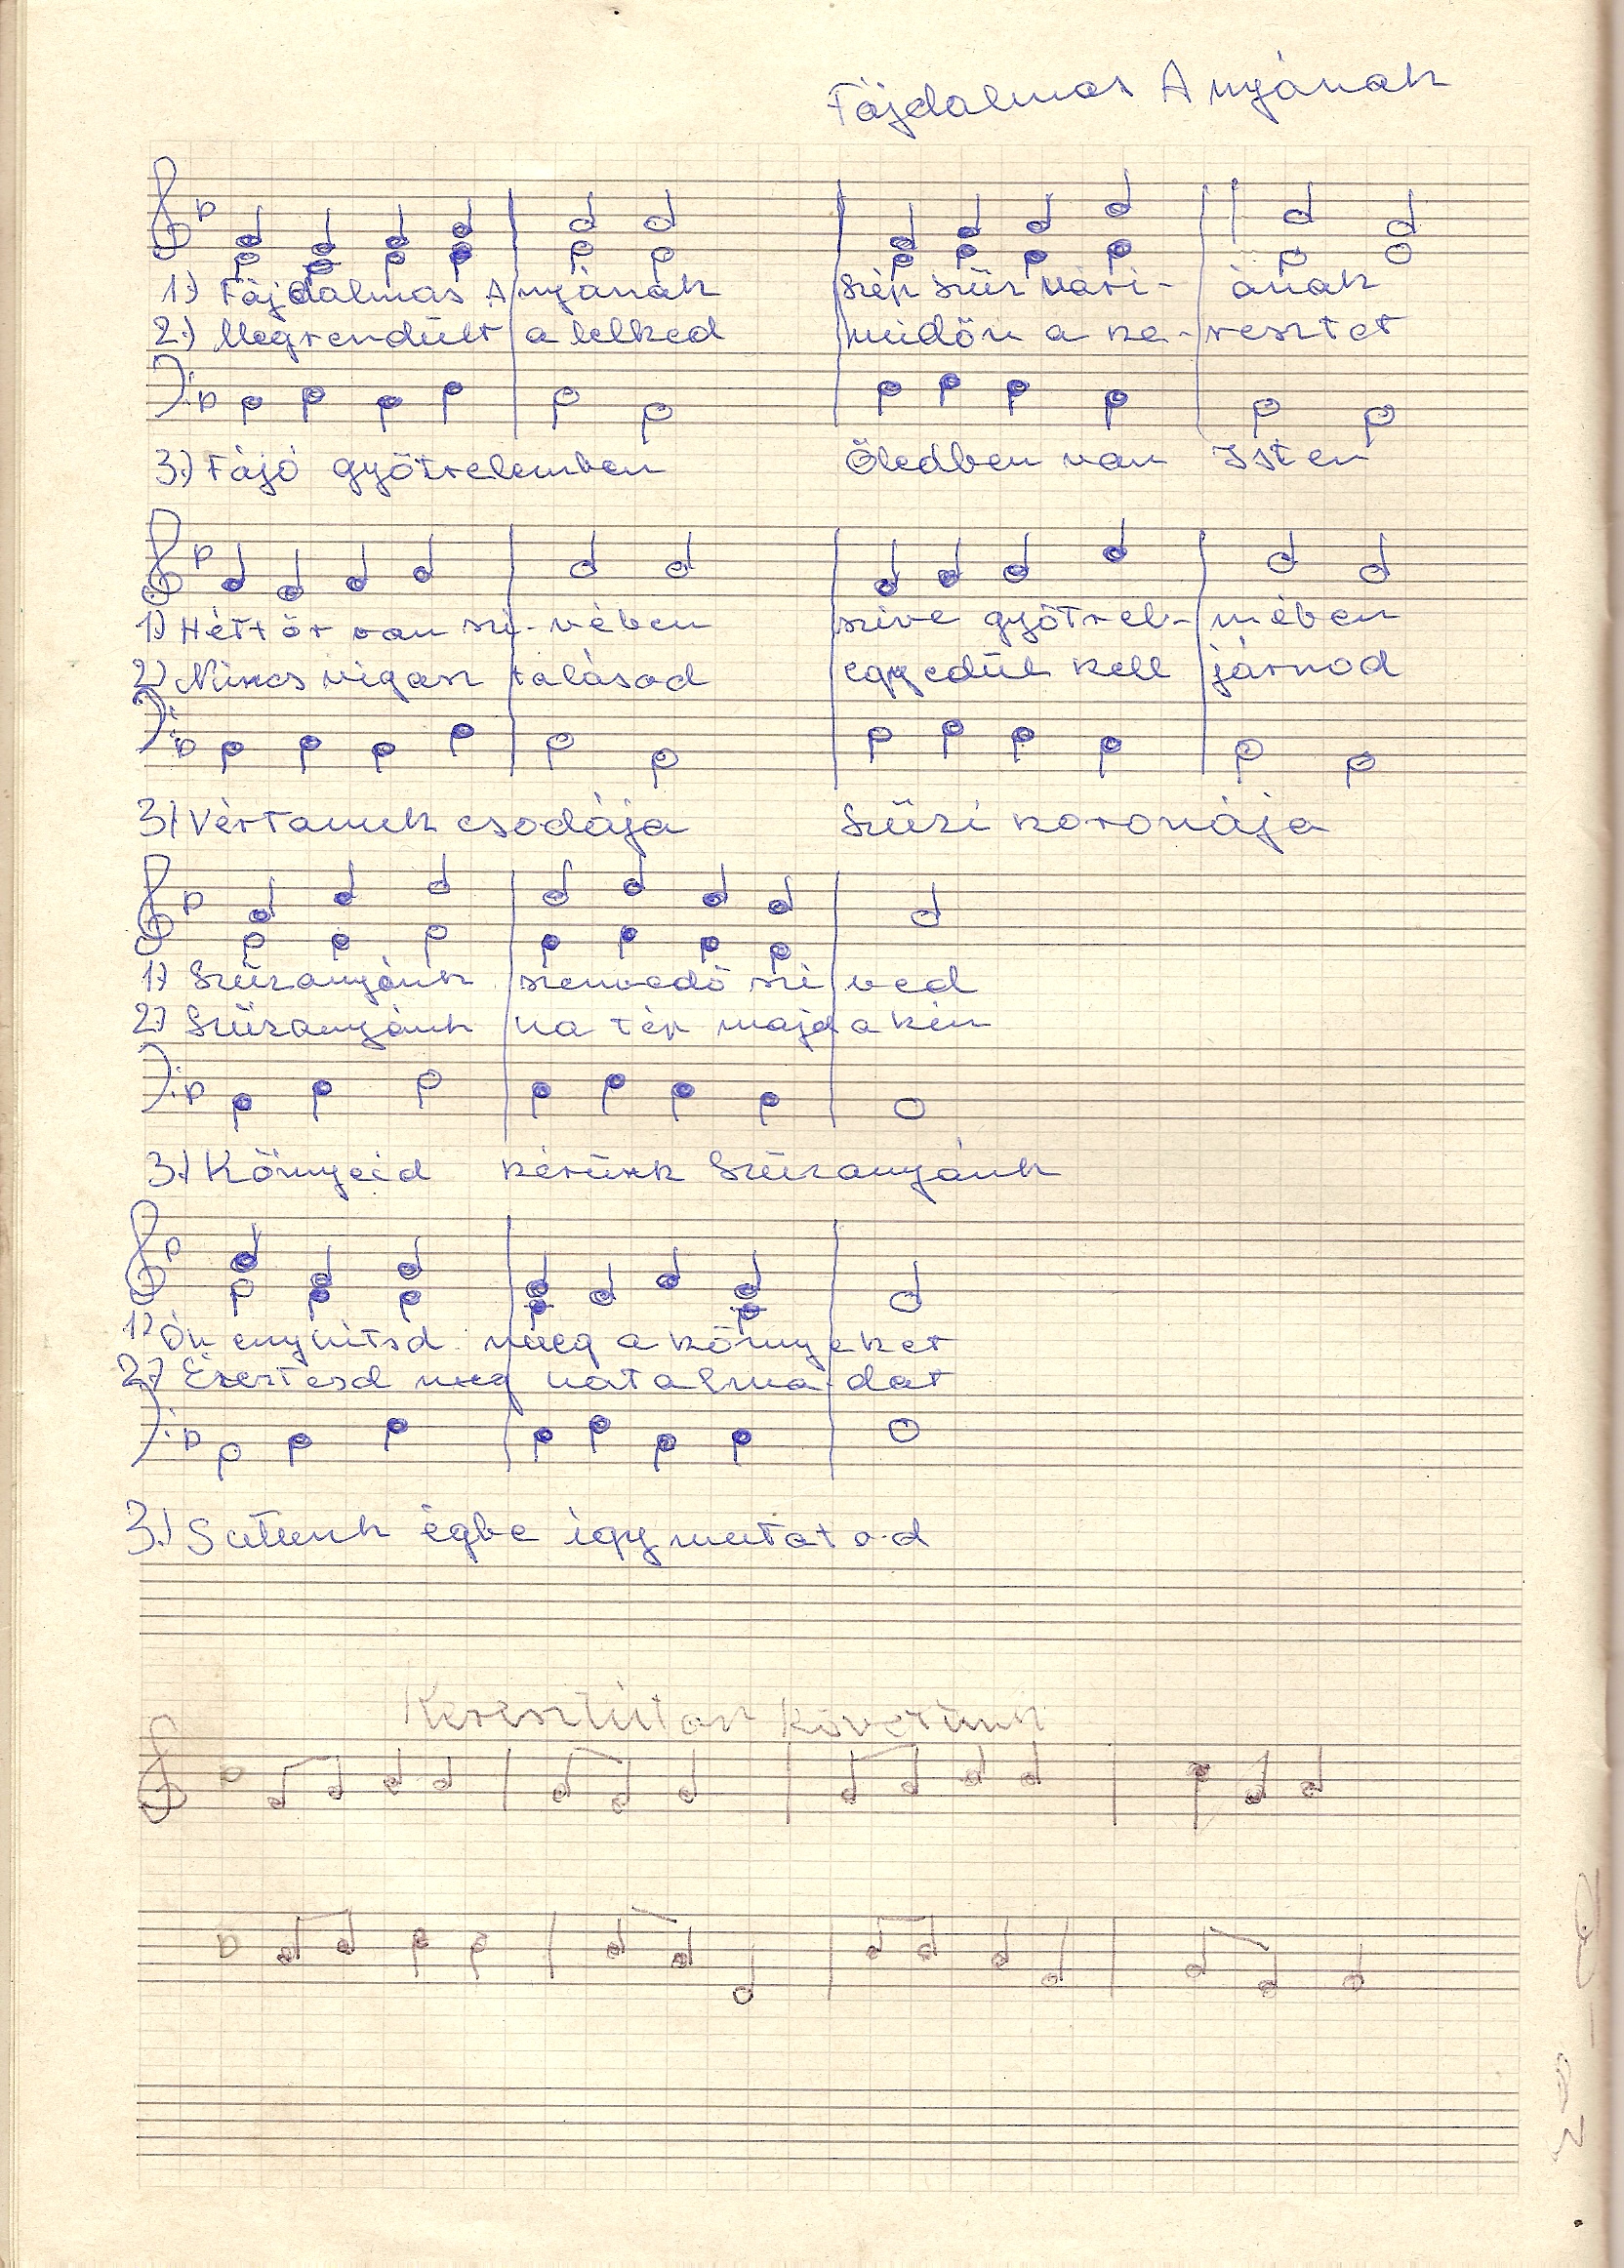 Fájdalmas Anyának
1.) Fájdalmas Anyának szép szűz Mári- ának
2.) Megrendült a lelked midőn a ke-resztet
3.) Fájó gyötrelemben Öledben van Isten
1) Hét tőr van szi-vében szive gyötrel-mében
2) Nincs vigasz talásod egyedül kell járnod
3) Vértanuk csodája Szüzi koronája
1) Szűzanyánk szenvedő szi ved
2.) Szűzanyánk ha tép majd a kín
3.) Könnyeid kérünk Szűzanyánk
1) Ón enyhitsd meg a könnyeket
2.) Éreztesd meg hatalma-dat
3.) Sutunk égbe igy mutatod
Keresztúton követünk